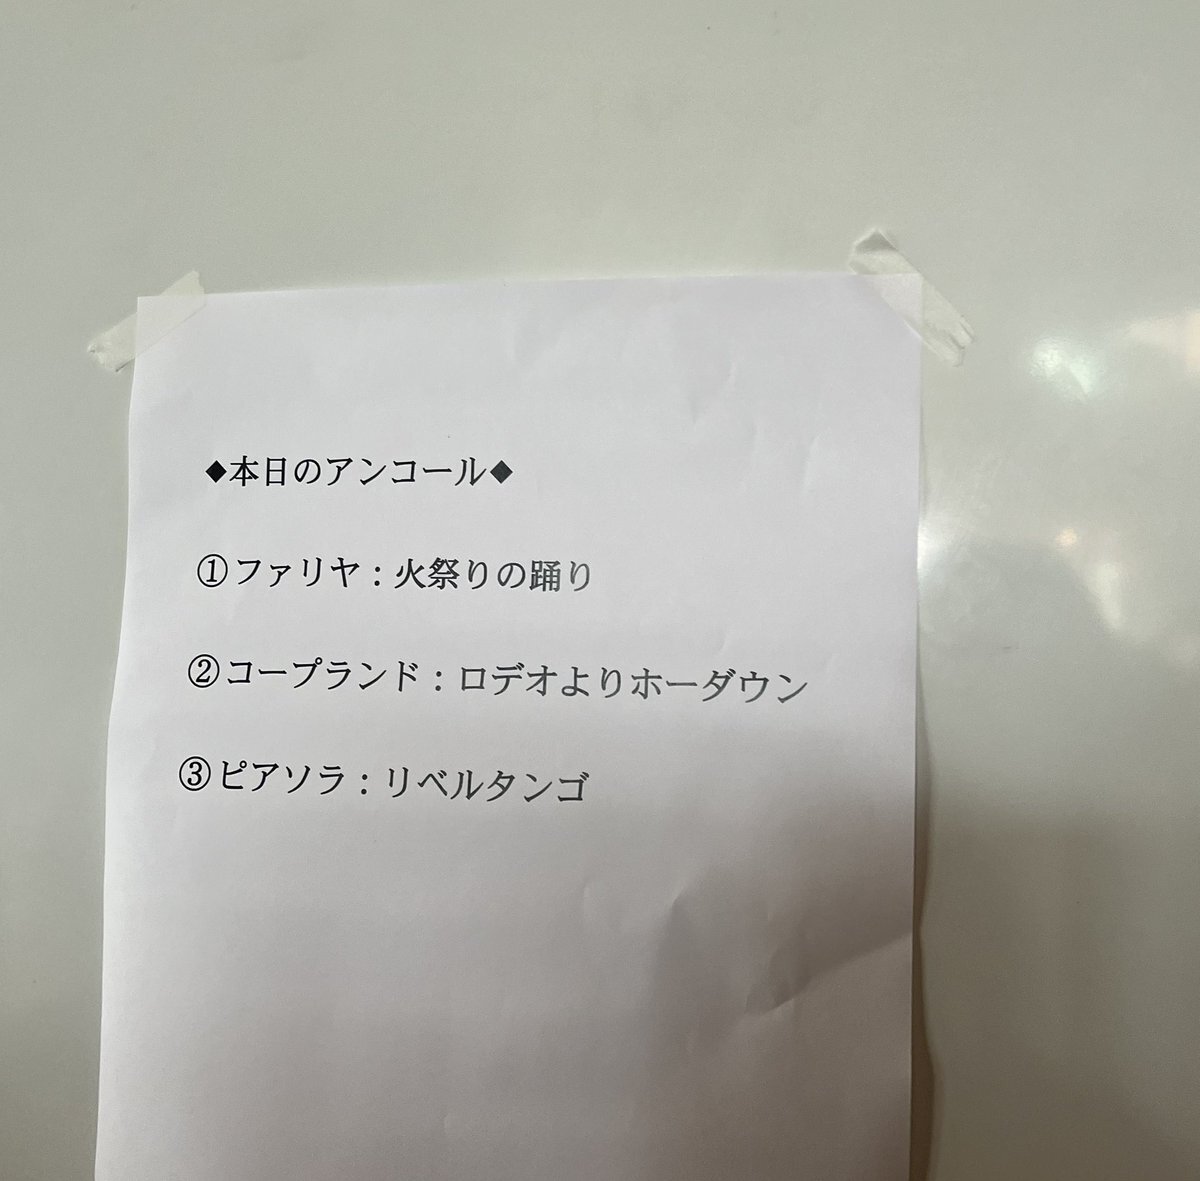 ◆本日のアンコール◆
①ファリヤ：火祭りの踊り
②コープランド：ロデオよりホーダウン
③ピアソラ：リベルタンゴ